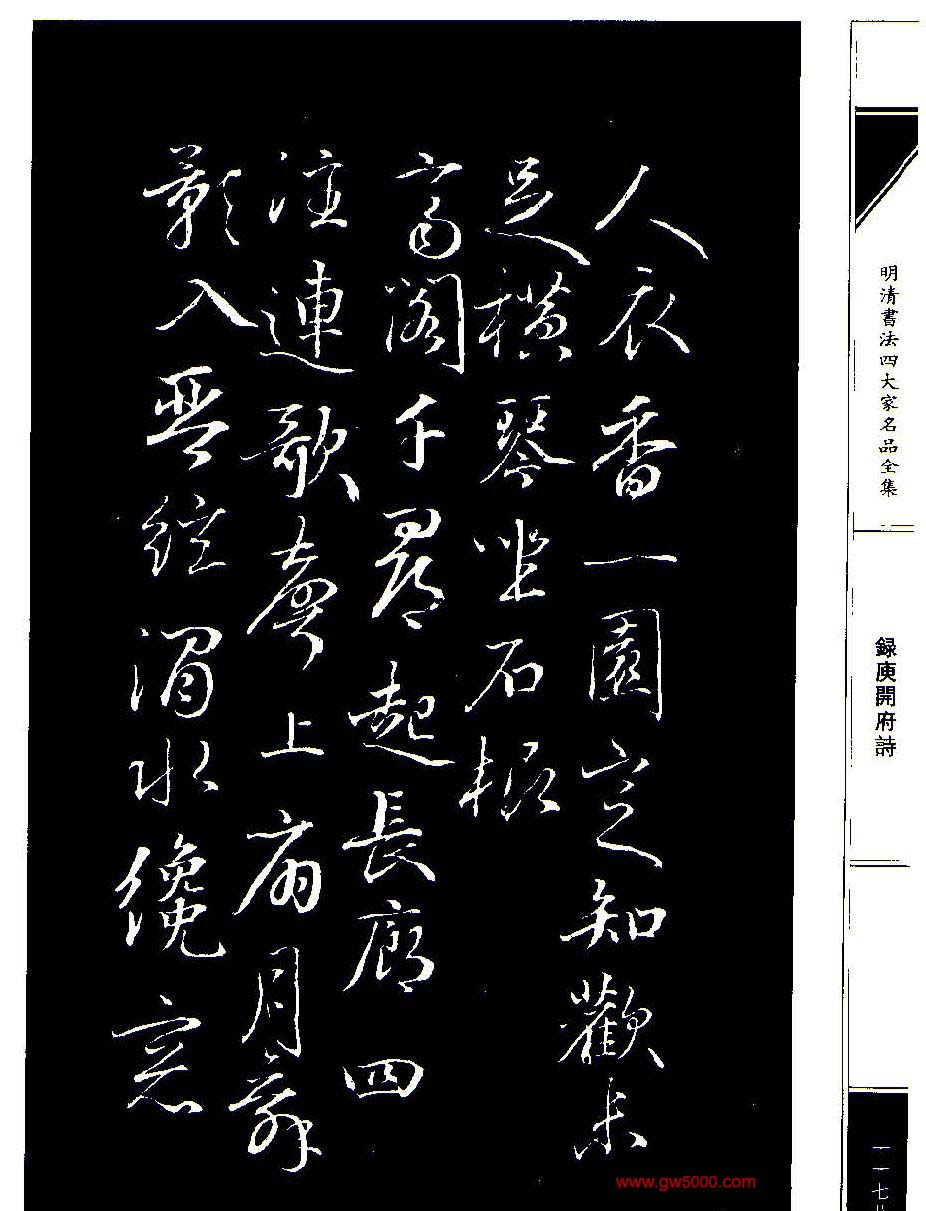 人衣香一園定知歡未
足橫琴坐石根
高閣千尋起長廊四
注連歌聲上扇月舞
影入琴絃澗水纔窓
明清書法四大家名品全集
録庾開府詩
一一七
www.gw5000.com